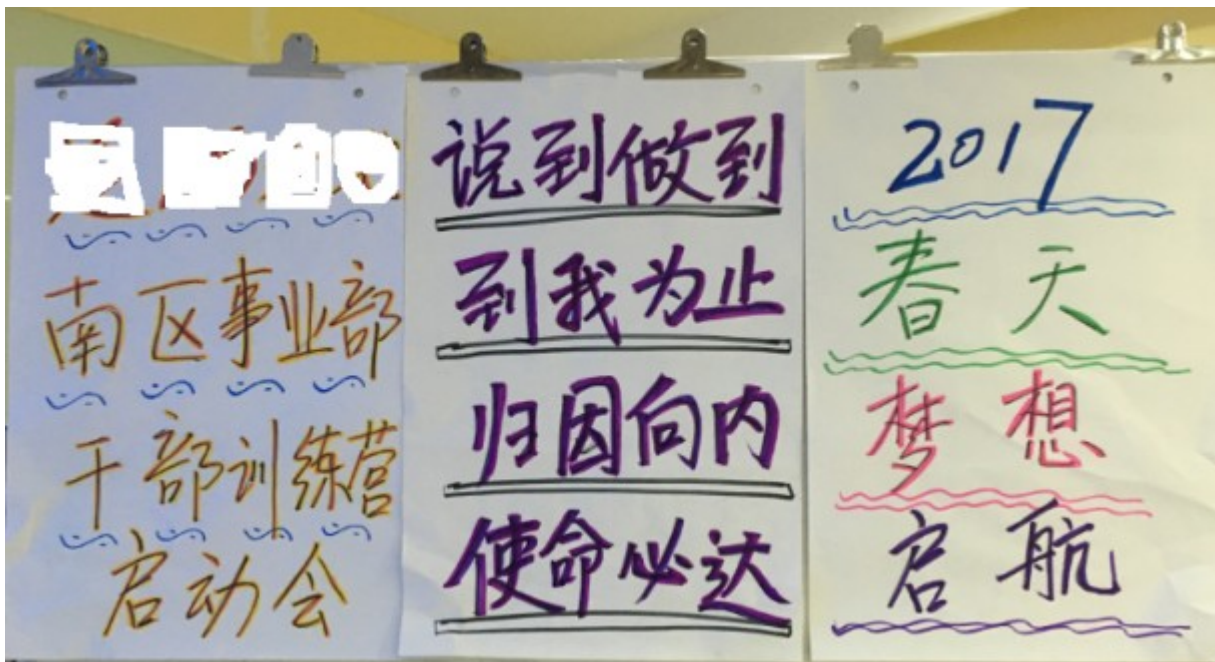 南区事业部
干部训练营
启动会
说到做到
到我为止
归因向内
使命必达
2017
春天
梦想
启航